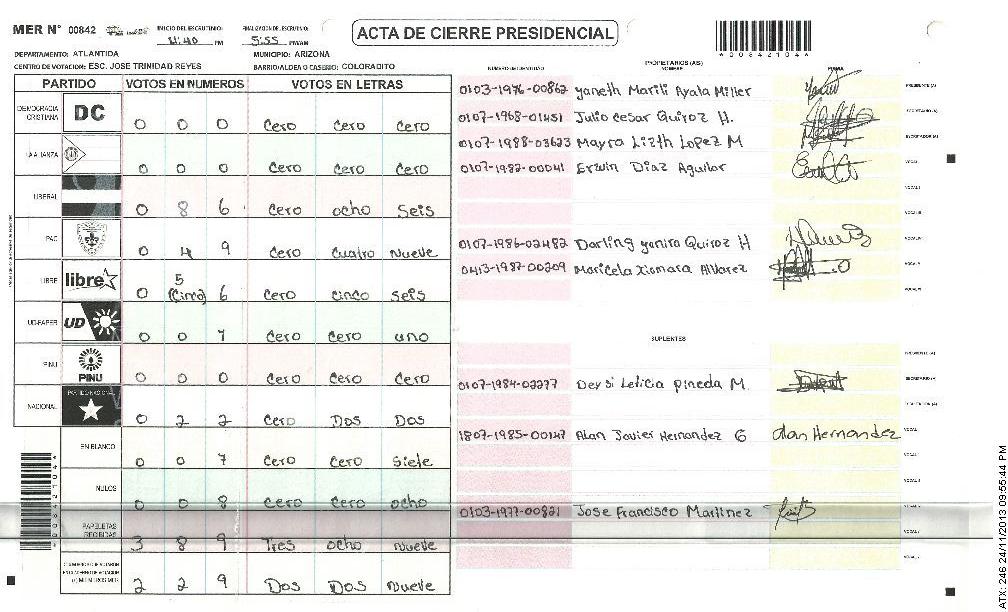 MER N° 00842
INICIO DEL ESCRUTINIO:
11:40 PM
FINALIZACION DE ESCRUTINIO:
5:55 PM/AM
ACTA DE CIERRE PRESIDENCIAL
*00842104*
DEPARTAMENTO: ATLANTIDA
MUNICIPIO: ARIZONA
CENTRO DE VOTACION: ESC. JOSE TRINIDAD REYES
BARRIO/ALDEA O CASERIO: COLORADITO
PARTIDO VOTOS EN NUMEROS VOTOS EN LETRAS
DEMOCRACIA CRISTIANA DC 0 0 0 Cero Cero Cero
LA ALIANZA 0 0 0 Cero Cero Cero
LIBERAL 0 8 6 Cero ocho Seis
PAC 0 4 9 Cero Cuatro Nueve
LIBRE libre 0 5 (Cinco) 6 Cero Cinco Seis
UD-FAPER UD 0 0 1 Cero Cero uno
PINU PINU 0 0 0 Cero Cero Cero
NACIONAL PARTIDO NACIONAL 0 2 2 Cero Dos Dos
EN BLANCO 0 0 7 Cero Cero Siete
NULOS 0 0 8 Cero Cero ocho
PAPELETAS RECIBIDAS 3 8 9 Tres ocho nueve
2 2 9 Dos Dos Nueve
NUMERO DE IDENTIDAD
PROPIETARIOS (AS)
NOMBRE
FIRMA
0103-1976-00862 Yaneth Marili Ayala Miller PRESIDENTE (A)
0107-1968-01451 Julio Cesar Quiroz H. SECRETARIO (A)
0107-1988-03623 Mayra Lizth Lopez M ESCRUTADOR (A)
0107-1982-00041 Erwin Diaz Aguilar VOCAL I
VOCAL II
VOCAL III
0107-1986-02482 Darling Yanira Quiroz H VOCAL IV
0413-1987-00209 Maricela Xiomara Alvarez VOCAL V
SUPLENTES
PRESIDENTE (A)
0107-1984-02277 Deysi Leticia pineda M. SECRETARIO (A)
ESCRUTADOR (A)
1807-1985-00147 Alan Javier Hernandez G Alan Hernandez VOCAL I
VOCAL II
VOCAL III
0103-1977-00821 Jose Francisco Martinez VOCAL IV
VOCAL V
*00842104*
ATX: 246 24/11/2013 09:55:44 PM